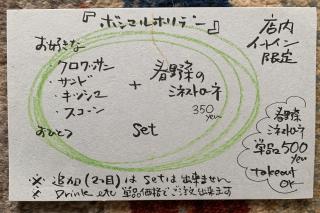 『ボンマルホリデー』
店内
イートイン
限定
お好きな
クロワッサン
・サンド
・キッシュ
・スコーン
おひとつ
+
春野菜の
ミネストローネ
350
yen
set
春野菜
ミネストローネ
単品500
yen
takeout
OK
※ 追加(2つ目)は setは出来ません
※ Drink etc 単品価格でご注文出来ます